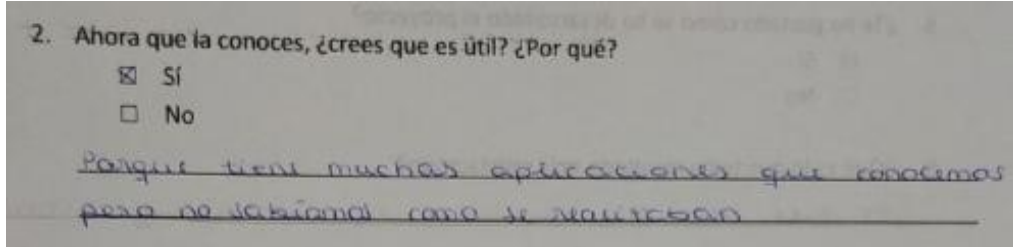 2. Ahora que la conoces, ¿crees que es útil? ¿Por qué?
☒ Sí
☐ No
Porque tiene muchas aplicaciones que conocemos
pero no sabíamos como se realizaban